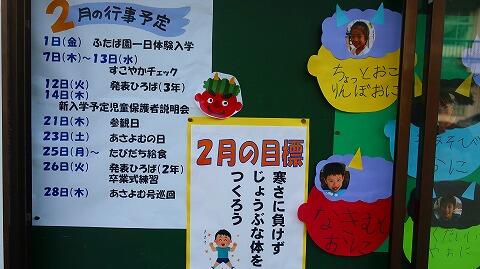 2月の行事予定
1日(金) ふたば園一日体験入学
7日(木)~13日(水)
すこやかチェック
12日(火) 発表ひろば(3年)
14日(木)
新入学予定児童保護者説明会
21日(木) 参観日
23日(土) あさよむの日
25日(月)~ たびだち給食
26日(火) 発表ひろば(2年)
卒業式練習
28日(木) あさよむ号巡回
2月の目標
寒さに負けず
じょうぶな体を
つくろう
ちょっとおこ
りんぼおに
なきむし
おに